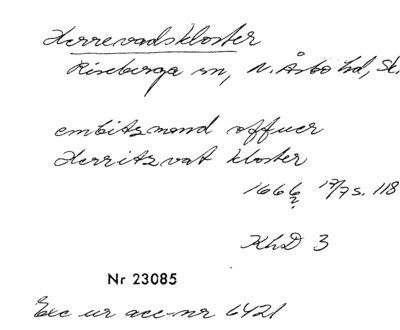 Herrevadskloster
Riseberga sn, N. Åsbo hd, Sk.
embitzmend offuer
Herritzvat kloster
1666 17/7 s. 118
?
KhD 3
Nr 23085
Exc ur acc-nr 6421